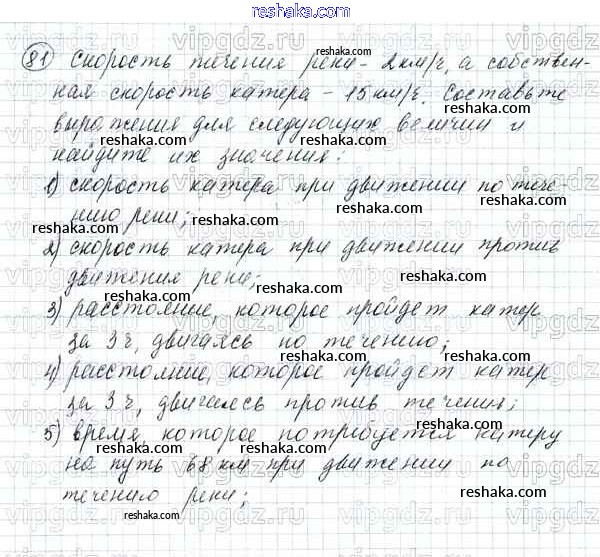 reshaka.com
81 Скорость течения реки - 2 км/ч, а собствен-
ная скорость катера - 15 км/ч. Составьте
выражения для следующих величин и
найдите их значения:
1) скорость катера при движении по тече-
нию реки;
2) скорость катера при движении против
движения реки;
3) расстояние, которое пройдет катер
за 3 ч, двигаясь по течению;
4) расстояние, которое пройдет катер
за 3 ч, двигаясь против течения;
5) время, которое потребуется катеру
на путь 68 км при движении по
течению реки;
reshaka.com
vipgdz.ru